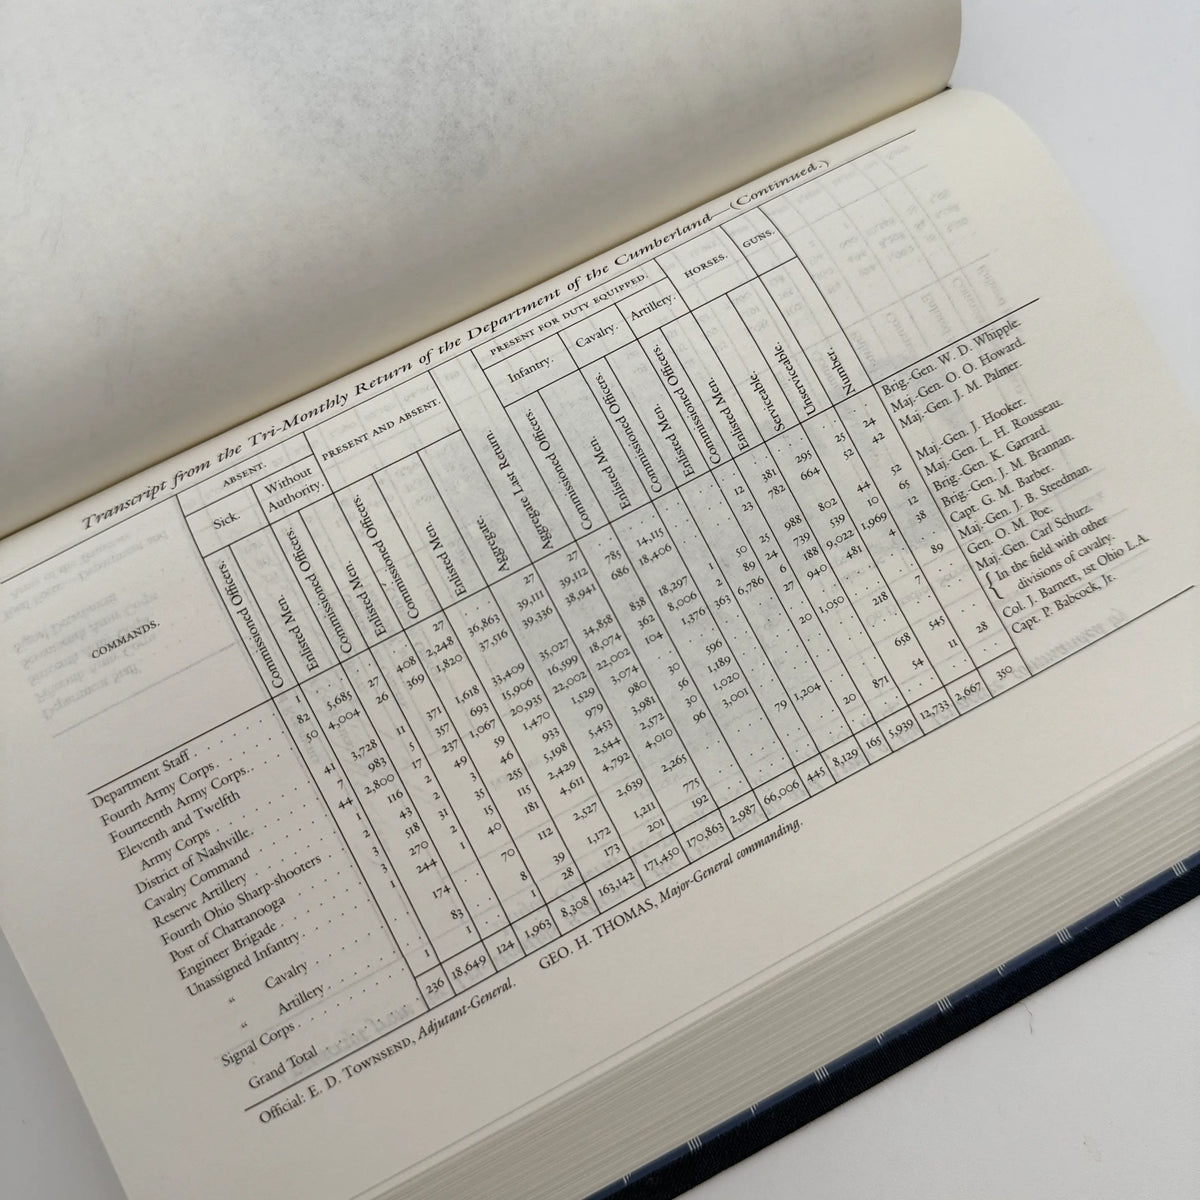 Transcript from the Tri-Monthly Return of the Department of the Cumberland—(Continued.)
COMMANDS. ABSENT. PRESENT AND ABSENT. PRESENT FOR DUTY EQUIPPED. HORSES. GUNS.
Sick. Without Authority. Infantry. Cavalry. Artillery.
Commissioned Officers. Enlisted Men. Commissioned Officers. Enlisted Men. Commissioned Officers. Enlisted Men. Aggregate. Aggregate Last Return. Commissioned Officers. Enlisted Men. Commissioned Officers. Enlisted Men. Commissioned Officers. Enlisted Men. Serviceable. Unserviceable. Number.
Department Staff . . 1 . . . 27 . 27 27 . . . . . . . . . Brig.-Gen. W. D. Whipple.
Fourth Army Corps . . 82 5,685 27 408 2,248 36,863 39,111 39,112 785 14,115 . . 12 381 295 25 24 Maj.-Gen. O. O. Howard.
Fourteenth Army Corps . . 50 4,004 26 369 1,820 37,516 39,336 38,941 686 18,406 . . 23 782 664 52 42 Maj.-Gen. J. M. Palmer.
Eleventh and Twelfth
Army Corps . . 41 3,728 11 371 1,618 33,409 35,027 34,858 838 18,297 1 50 25 988 802 44 52 Maj.-Gen. J. Hooker.
District of Nashville . . 7 983 5 357 693 15,906 16,599 18,074 362 8,006 2 89 24 739 539 10 65 Maj.-Gen. L. H. Rousseau.
Cavalry Command . . 44 2,800 17 237 1,067 20,935 22,002 22,002 104 1,376 363 6,786 6 188 9,022 1,969 12 Brig.-Gen. K. Garrard.
Reserve Artillery . . 1 116 2 49 59 1,470 1,529 3,074 . . . . 27 940 481 4 38 Brig.-Gen. J. M. Brannan.
Fourth Ohio Sharp-shooters 2 43 2 3 46 933 979 980 30 596 . . . . . . . Capt. G. M. Barber.
Post of Chattanooga 3 518 31 35 255 5,198 5,453 3,981 56 1,189 . . 20 1,050 218 7 89 Maj.-Gen. J. B. Steedman.
Engineer Brigade . . 3 270 2 15 115 2,429 2,544 2,572 30 1,020 . . . . . . . Gen. O. M. Poe.
Unassigned Infantry . . 1 244 1 40 181 4,611 4,792 4,010 96 3,001 . . . . . . . Maj.-Gen. Carl Schurz.
“ Cavalry . . . 174 . 70 112 2,527 2,639 2,265 . . 79 1,204 . . 658 545 . { In the field with other divisions of cavalry.
“ Artillery . . . 83 . 8 39 1,172 1,211 775 . . . . 20 871 54 11 28 Col. J. Barnett, 1st Ohio L.A.
Signal Corps . . 1 1 . 1 28 173 201 192 . . . . . . . . . Capt. P. Babcock, Jr.
Grand Total . . 236 18,649 124 1,963 8,308 163,142 171,450 170,863 2,987 66,006 445 8,129 165 5,939 12,733 2,667 350
Official: E. D. TOWNSEND, Adjutant-General. GEO. H. THOMAS, Major-General commanding.